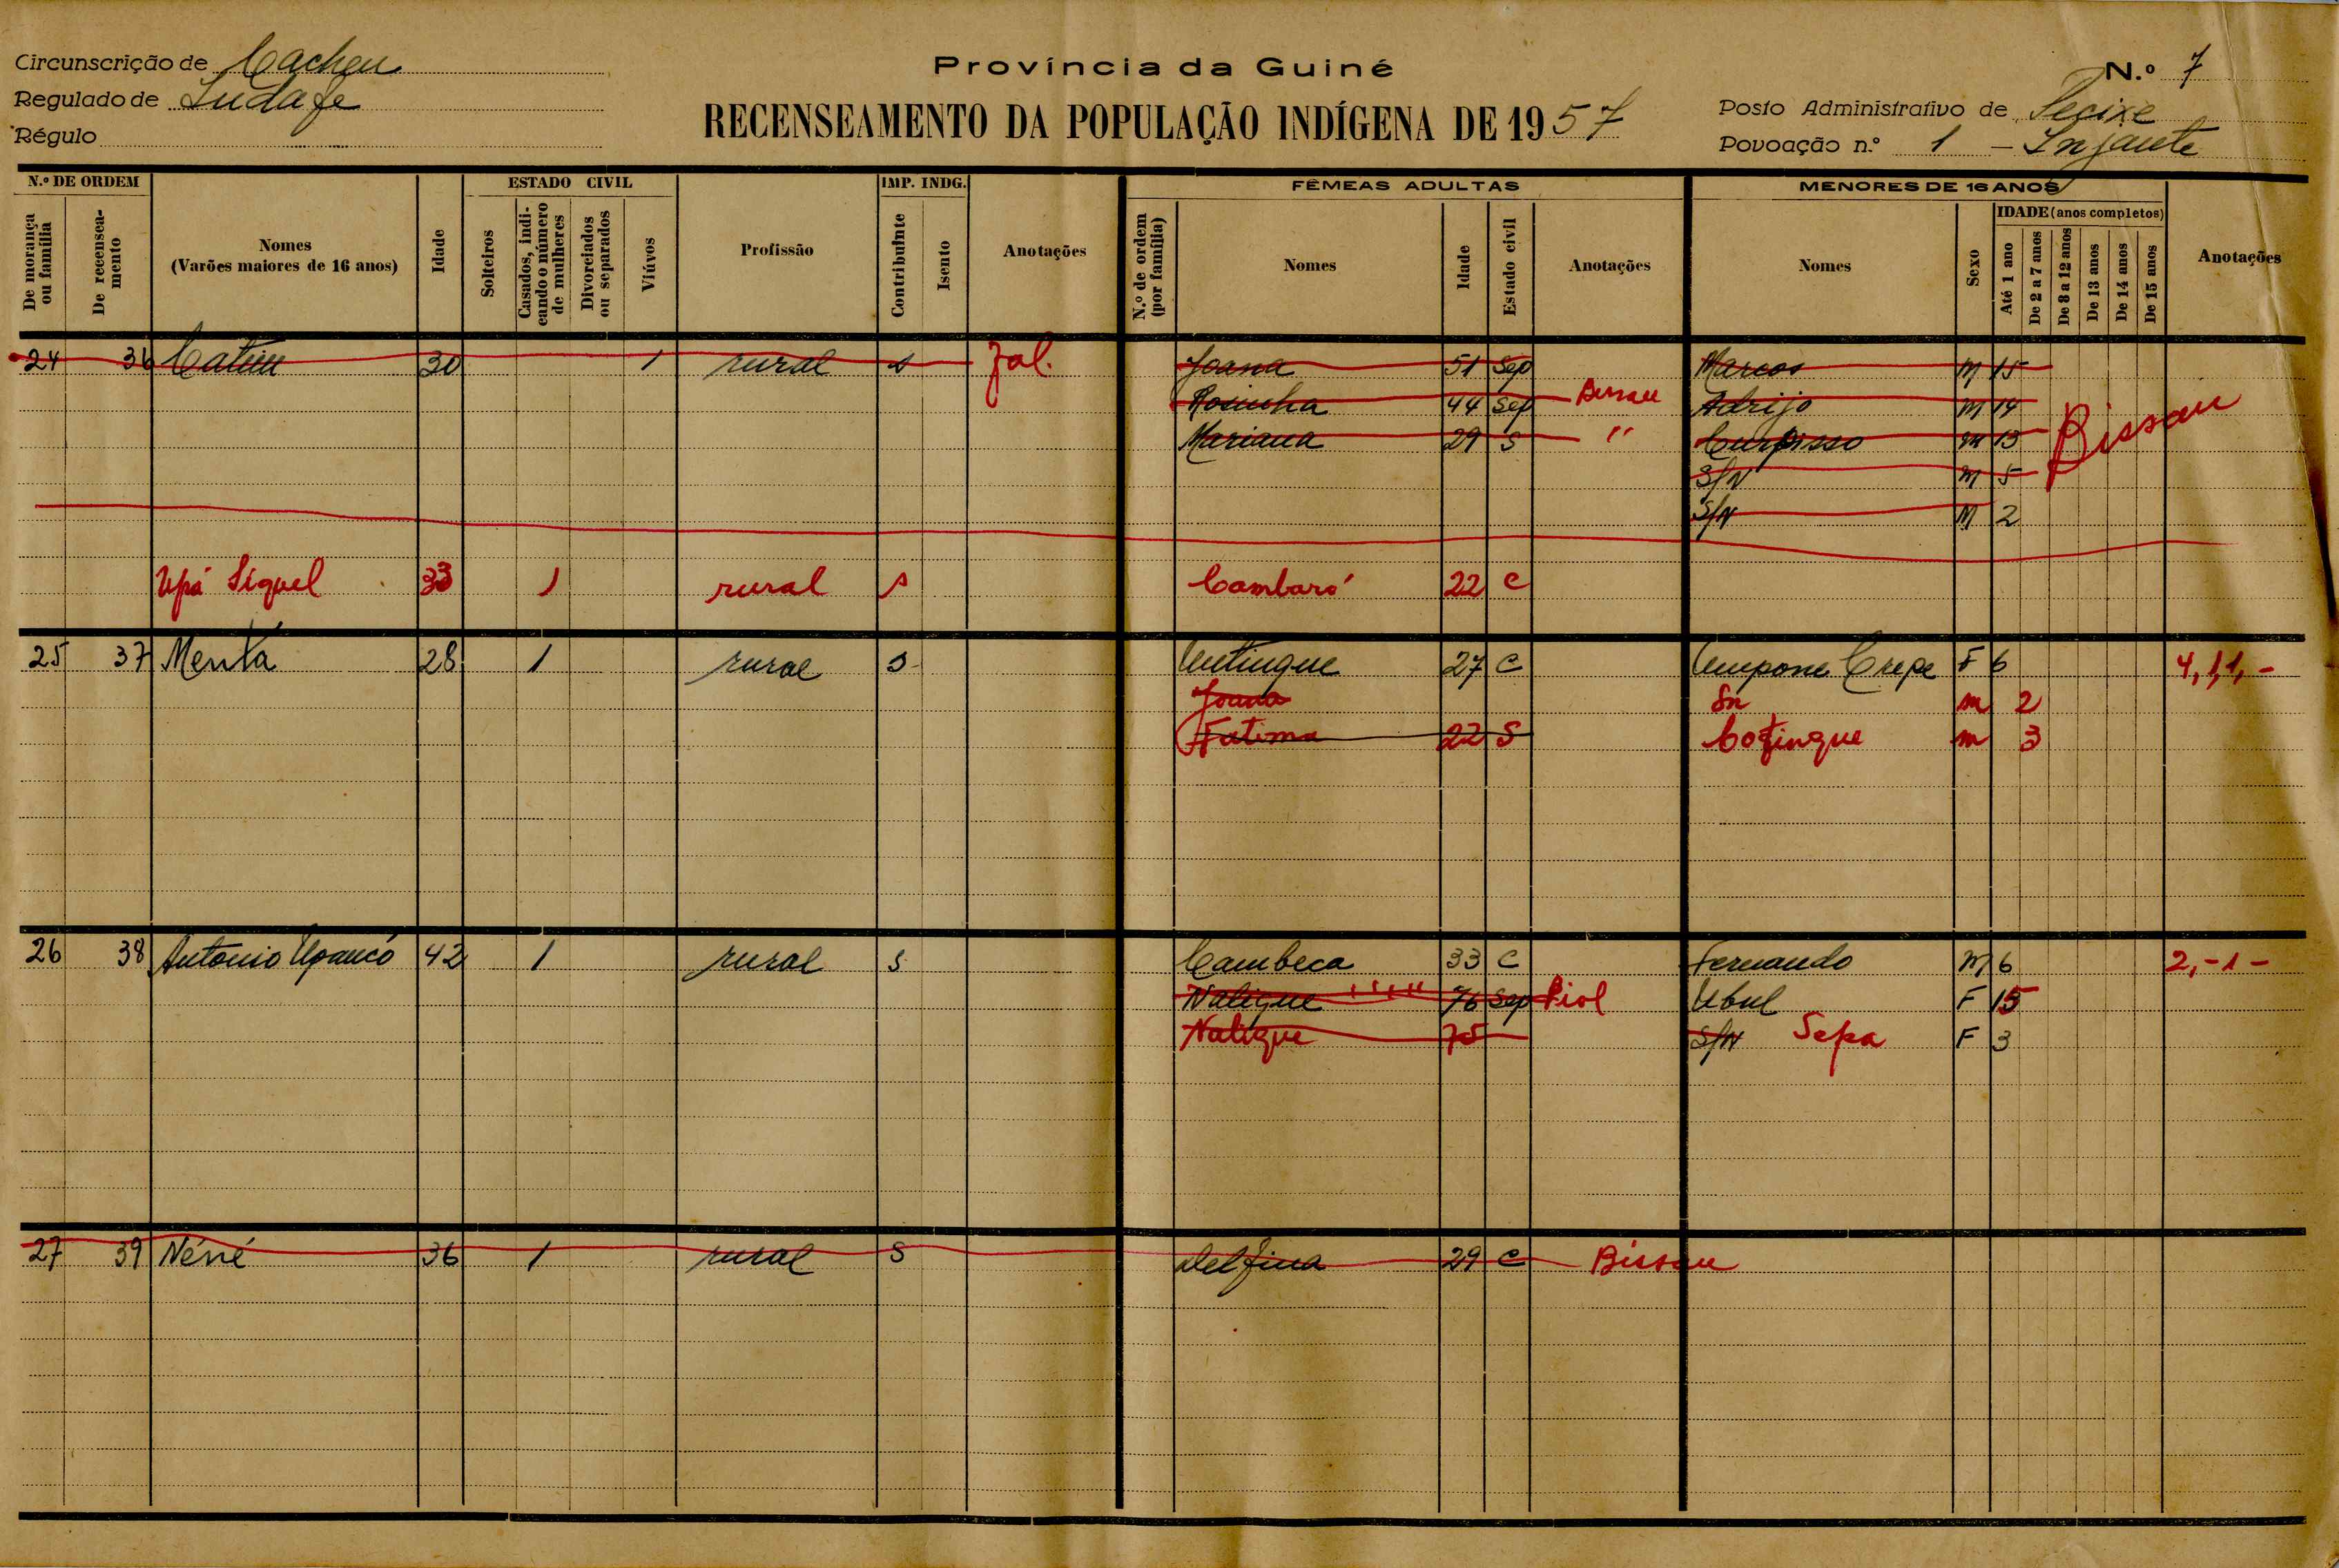 Circunscrição de Cacheu
Província da Guiné
N.º 7
Regulado de
RECENSEAMENTO DA POPULAÇÃO INDÍGENA DE 1957
Posto Administrativo de
Régulo
Povoação n.º 1 –
N.º DE ORDEM
De morança ou família
De recenseamento
Nomes
(Varões maiores de 16 anos)
Idade
ESTADO CIVIL
Solteiros
Casados, indicando o número de mulheres
Divorciados ou separados
Viúvos
Profissão
IMP. INDG.
Contribuinte
Isento
Anotações
FÊMEAS ADULTAS
N.º de ordem (por família)
Nomes
Idade
Estado civil
Anotações
MENORES DE 16 ANOS
Nomes
Sexo
IDADE (anos completos)
Até 1 ano
De 2 a 7 anos
De 8 a 12 anos
De 13 anos
De 14 anos
De 15 anos
Anotações
24 36 30 1 rural s Joana 51 Sep Marcos M 15
Rosinha 44 Sep Bissau Adrijo M 14
Mariana 29 S " M 13 Bissau
S/N M 5
S/N M 2
Upá Siquel 33 1 rural s Cambaró 22 C
25 37 Menta 28 1 rural s 27 C F 6 4,1,1,-
Joana Sn m 2
Fatima 22 S m 3
26 38 Antonio 42 1 rural s Cambeca 33 C Fernando M 6 2,-1-
Natique 76 Sep Ubul F 15
Natique 75 S/N Sepa F 3
27 39 Néné 36 1 rural s Delfina 29 C Bissau